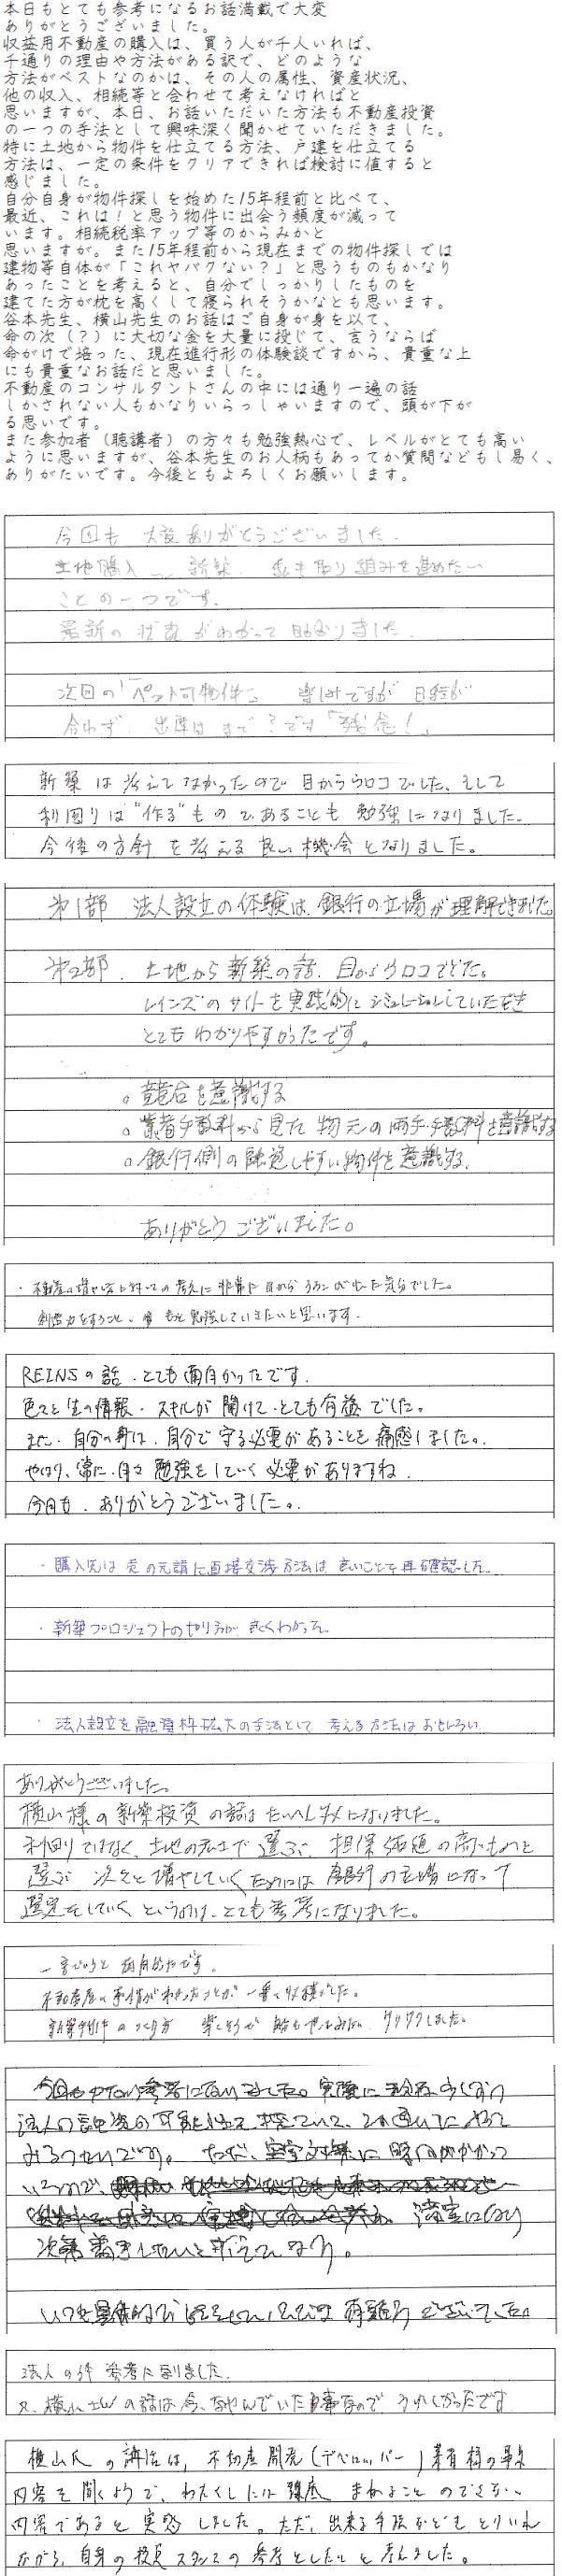 本日もとても参考になるお話満載で大変
ありがとうございました。
収益用不動産の購入は、買う人が千人いれば、
千通りの理由や方法がある訳で、どのような
方法がベストなのかは、その人の属性、資産状況、
他の収入、相続等と合わせて考えなければと
思いますが、本日、お話いただいた方法も不動産投資
の一つの手法として興味深く聞かせていただきました。
特に土地から物件を仕立てる方法、戸建を仕立てる
方法は、一定の条件をクリアできれば検討に値すると
感じました。
自分自身が物件探しを始めた15年程前と比べて、
最近、これは！と思う物件に出会う頻度が減って
います。相続税率アップ等のからみかと
思いますが。また15年程前から現在までの物件探しでは
建物等自体が「これヤバクない？」と思うものもかなり
あったことを考えると、自分でしっかりしたものを
建てた方が枕を高くして寝られそうかなとも思います。
谷本先生、横山先生のお話はご自身が身を以て、
命の次（？）に大切な金を大量に投じて、言うならば
命がけで培った、現在進行形の体験談ですから、貴重な上
にも貴重なお話だと思いました。
不動産のコンサルタントさんの中には通り一遍の話
しかされない人もかなりいらっしゃいますので、頭が下が
る思いです。
また参加者（聴講者）の方々も勉強熱心で、レベルがとても高い
ように思いますが、谷本先生のお人柄もあってか質問などもし易く、
ありがたいです。今後ともよろしくお願いします。
今回も 大変ありがとうございました。
土地購入 新築 私も取り組みを進めたい
ことの一つです。
最新の状況がわかって助かりました。
次回の「ペット可物件」 楽しみですが 日程が
合わず 出席は です「残念！」
新築は考えてなかったので目からウロコでした。そして
利回りは"作る"ものであることも勉強になりました。
今後の方針を考える良い機会となりました。
第1部 法人設立の体験は、銀行の立場が理解できました。
第2部. 土地から新築の話、目からウロコでした。
レインズのサイトを実践的にシュミレーションしていただき
とてもわかりやすかったです。
。競合を意識する
。業者手数料から見た 物元の両手手数料を意識する
。銀行側の融資しやすい物件を意識する.
ありがとうございました。
・不動産の増やし方に対しての考えに非常に目からうろこが出た気分でした。
もっと勉強していきたいと思います.
REINSの話、とても面白かったです.
色々と生の情報・スキルが聞けて、とても有益でした。
また、自分の身は、自分で守る必要があることを痛感しました。
やはり、常に、日々勉強をしていく必要がありますね.
今日も、ありがとうございました。
・購入先は 売の元請に直接交渉方法は 良いことを再確認した。
・新築プロジェクトのやり方が よくわかった。
・法人設立を融資枠拡大の手法として 考える方法はおもしろい
ありがとうございました。
横山様の新築投資の話はたいへん参考になりました。
利回りではなく、土地の広さで選ぶ、担保価値の高いものを
選ぶ 次々と増やしていくためには 銀行の立場になって
選定をしていくというのは、とても参考になりました。
一言でいうと 面白かったです。
不動産屋の事情がわかったことが 一番の収穫でした。
新築物件のつくり方 楽しそうで 私もやってみたい. ワクワクしました。
今回もかなり参考になりました。実際に
ただ、空室対策に時間がかかって
いるので、 満室になり
次第 着手したいと考えています。
法人の件 参考に到りました.
又、横山さんの話は今、なやんでいた事なので うれしかったです
横山氏の講話は、不動産開発（デベロッパー）業者様の事業
内容を聞くようで、わたくしには到底 まねることのできない
内容であると実感しました。ただ、出来る手法などを とりいれ
ながら、自身の投資スタンスの参考としたいと考えました。